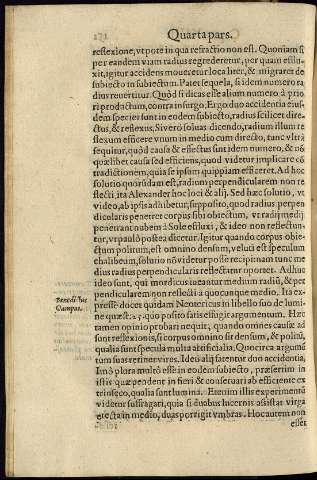 172 Quarta pars.
reflexione, vt pote in qua refractio non est. Quoniam si
per eandem viam radius regrederetur, per quam effluxit,
igitur accidens moueretur localiter, & migraret de
subiecto in subiectum. Patet sequela, si idem numero radius
reuertitur. Quòd si dicas esse alium numero à priori
productum, contra insurgo. Ergo duo accidentia eiusdem
speciei sunt in eodem subiecto, radius scilicet directus,
& reflexus. Si vero soluas dicendo, radium illum reflexum
efficere vnum in medio cum directo, tunc vltrà
sequitur, quòd causa & effectus sunt idem numero, & nõ
quælibet causa sed efficiens, quod videtur implicare cõtradictionem,
quia se ipsum quippiam efficeret. Ad hoc
solutio quorũdam est, radium perpendicularem non reflecti,
ita Alexander hoc loci & alij. Sed hæc solutio, vt
video, ab ipsis adhibetur, supposito, quod radius perpendicularis
penetret corpus sibi obiectum, vt radij medij
penetrant nubem à Sole effluxi, & ideo non reflectuntur,
vt paulò postea dicetur. Igitur quando corpus obiectum
politum, est omnino densum, velut est speculum
chalibeum, solutio nõ videtur posse recipi tam tunc medius
radius perpendicularis reflectatur oportet. Adhuc
ideo sunt, qui mordicus tueantur medium radiũ, & perpendicularem
non reflecti à quocunque medio. Ita expressè
docet quidam Neotericus in libello suo de lumine
quæst. 27. quo posito facis effugit argumentum. Hæc
tamen opinio probari nequit, quando omnes causæ adsunt
reflexionis, si corpus omnino sit densum, & politũ,
qualia sunt specula multa artificialia. Quocirca argumẽtum
suas retinet vires. Ideo alij fatentur duo accidentia,
Imò plura multò esse in eodem subiecto, præsertim in
istis quæ pendent in fieri & conseruari ab efficiente extrinseco,
qualia sunt lumina. Etenim illis experimentũ
videtur suffragati, quia si duobus lucernis assistat virga
erecta in medio, duas porrigit vmbras. Hoc autem non
esset